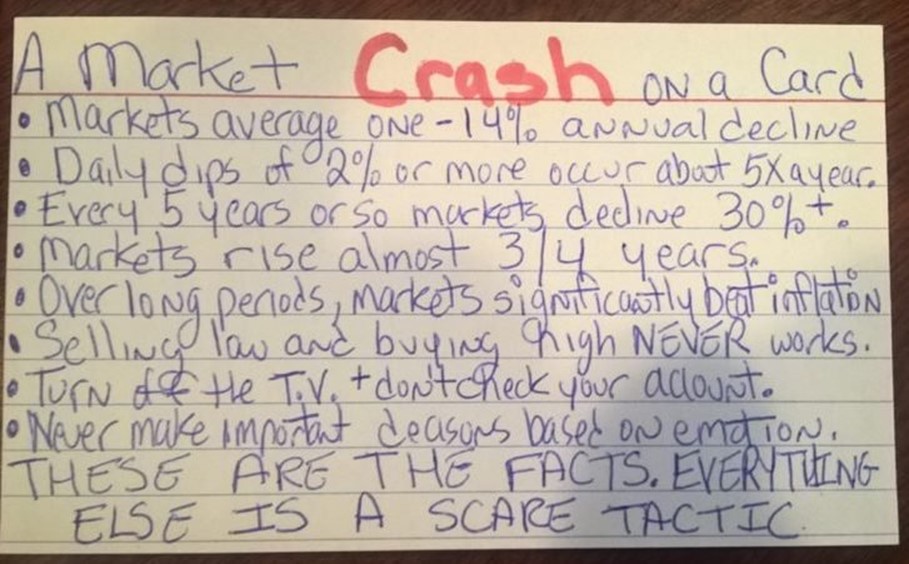 A Market Crash on a Card
• Markets average one -14% annual decline
• Daily dips of 2% or more occur about 5X a year.
• Every 5 years or so markets decline 30%+.
• Markets rise almost 3/4 years.
• Over long periods, markets significantly beat inflation
• Selling low and buying high NEVER works.
• Turn off the T.V. + don't check your account.
• Never make important decisions based on emotion.
THESE ARE THE FACTS. EVERYTHING
ELSE IS A SCARE TACTIC.